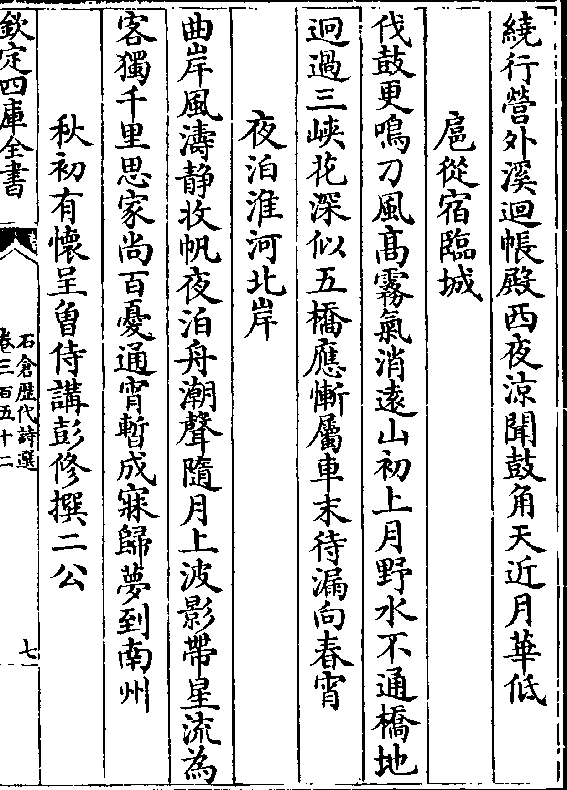 繞行營外溪迴帳殿西夜涼聞鼓角天近月華低
扈從宿臨城
伐鼓更鳴刀風髙霧氣消遠山初上月野水不通橋地
迥過三峽花深似五橋應慚屬車末待漏向春宵
夜泊淮河北岸
曲岸風濤静收帆夜泊舟潮聲隨月上波影帶星流為
客獨千里思家尚百憂通宵暫成寐歸夢到南州
秋初有懷呈曾侍講彭修撰二公
欽定四庫全書
石倉歴代詩選
卷三百五十二
七